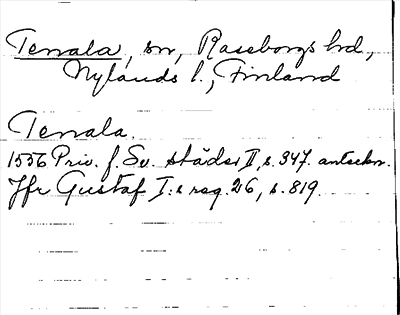 Tenala, sn, Raseborgs hd,
Nylands l., Finland
Tenala.
1556 Priv. f. Sv. städer II, s. 347. anteckn.
Jfr Gustaf I:s reg. 26, s. 819.